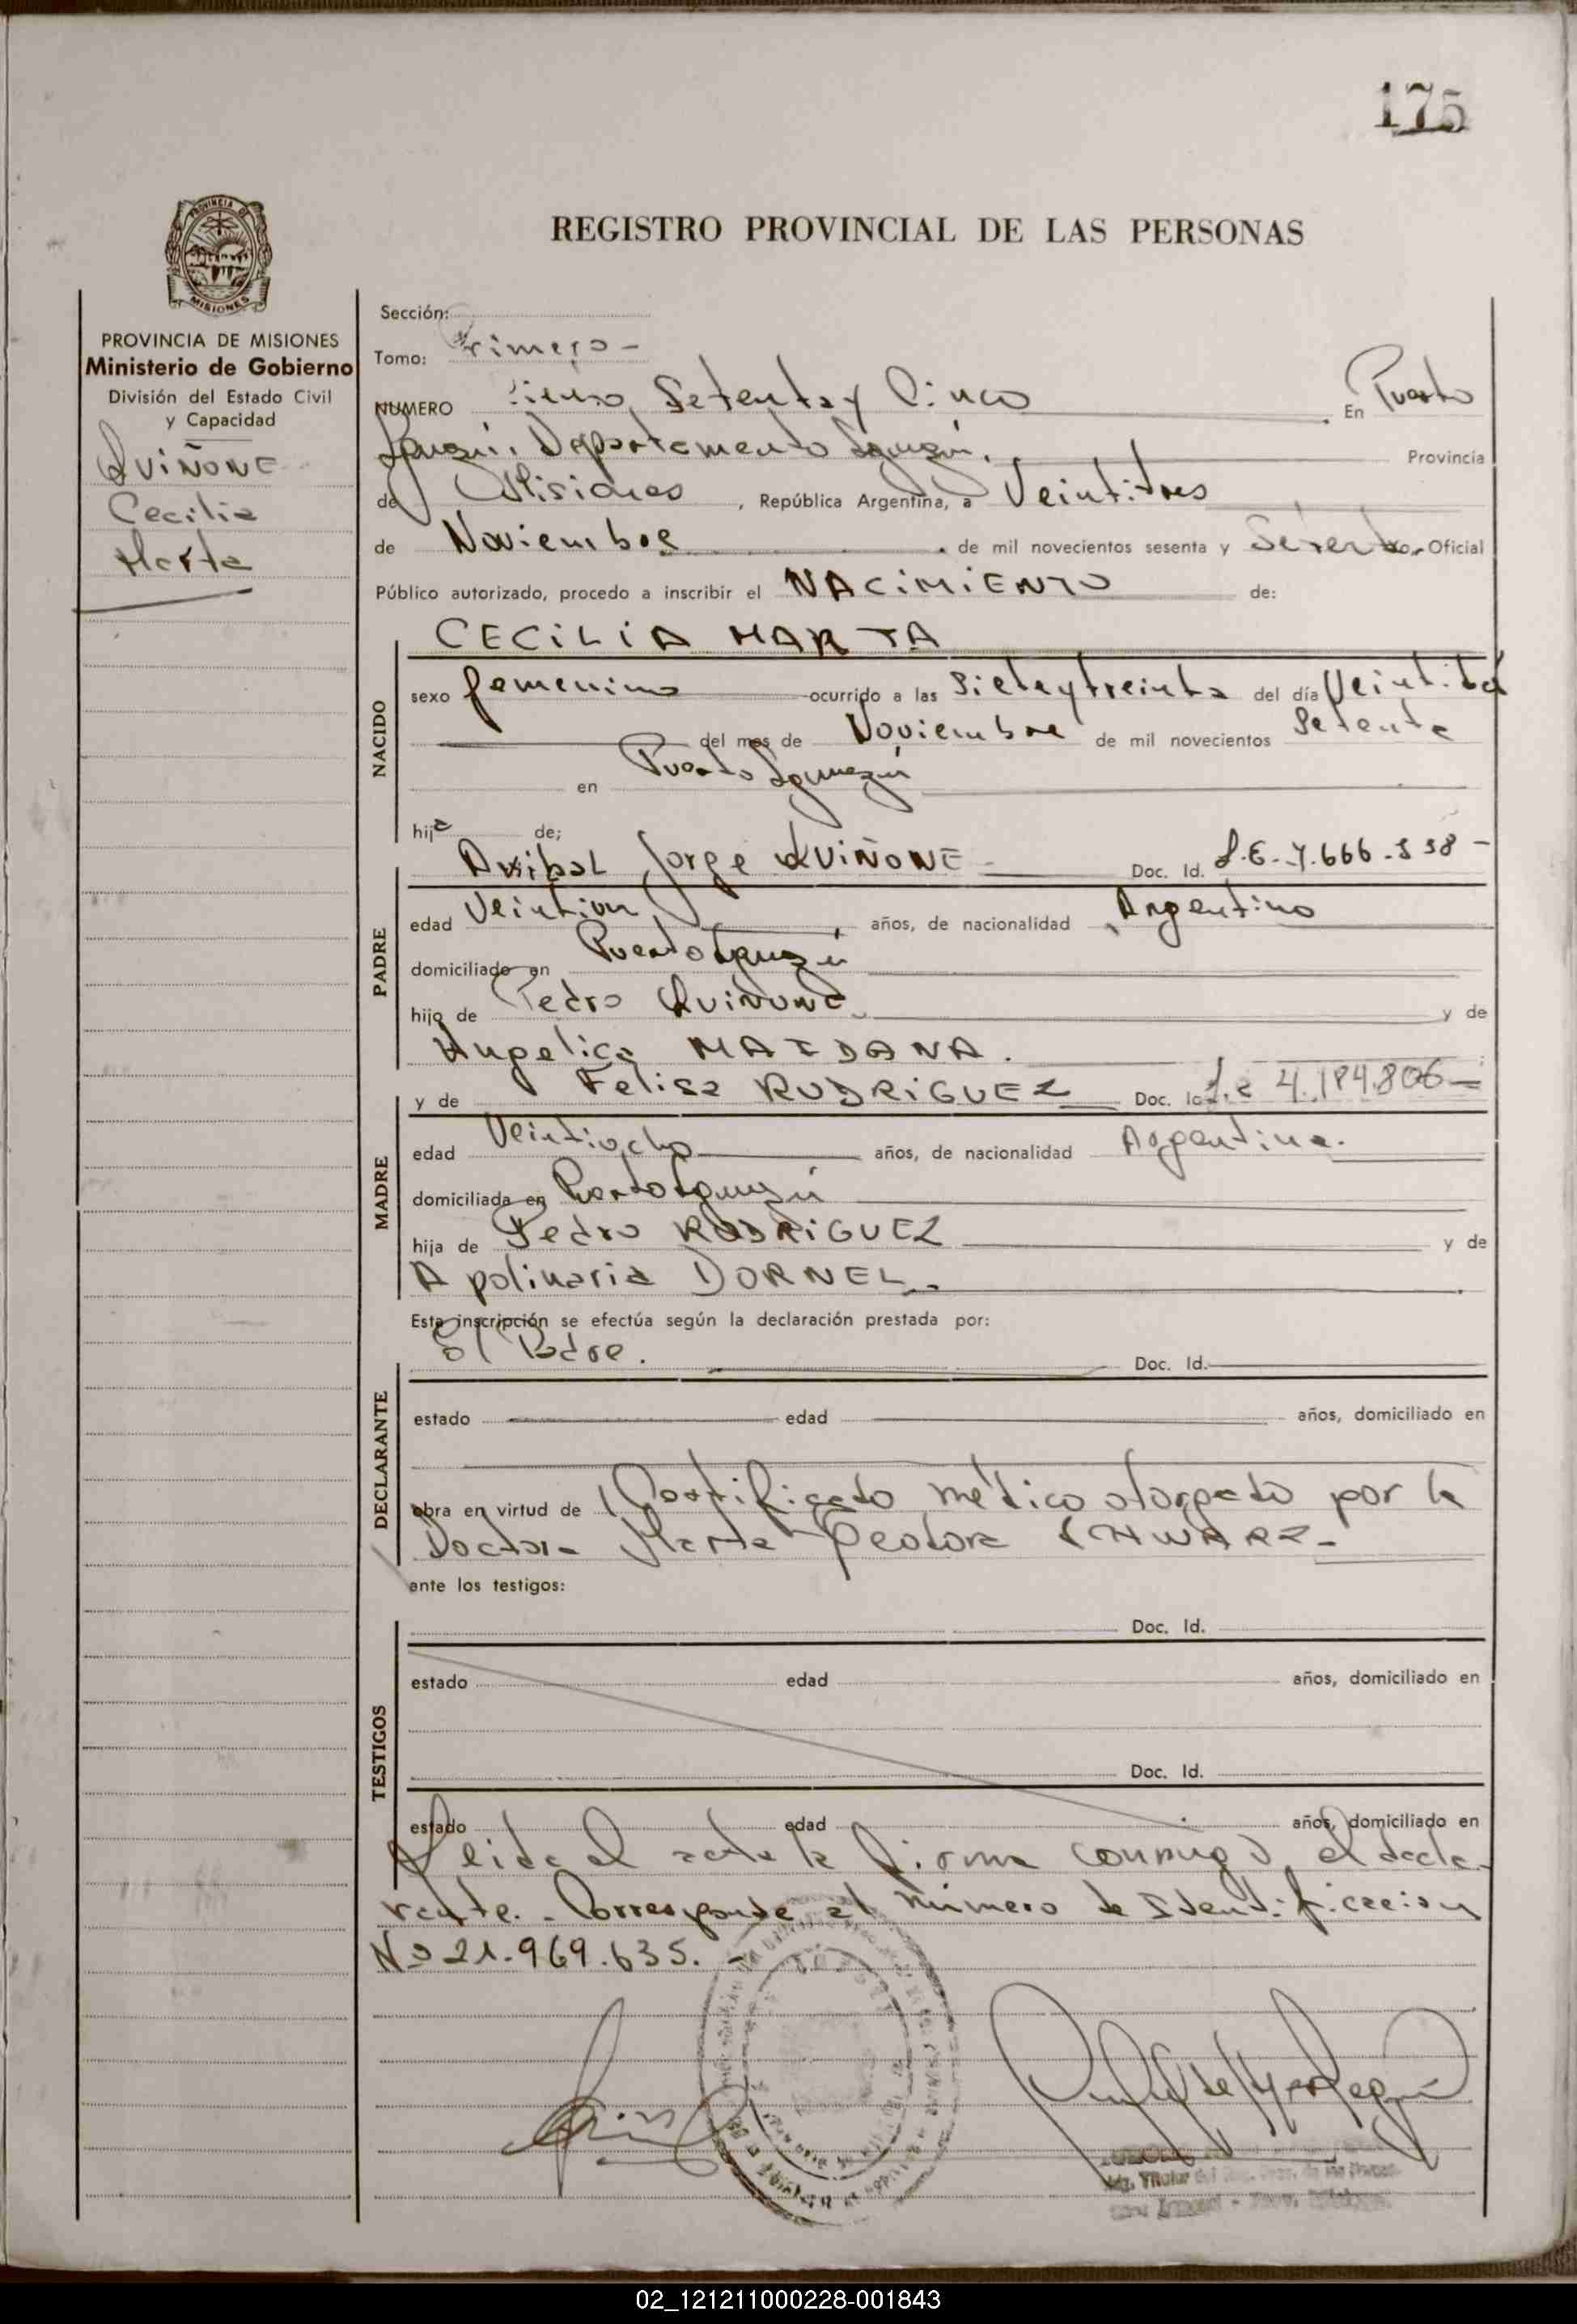 175
PROVINCIA DE
MISIONES
REGISTRO PROVINCIAL DE LAS PERSONAS
PROVINCIA DE MISIONES
Ministerio de Gobierno
División del Estado Civil
y Capacidad
QUIÑONE
Cecilia
Marta
Sección:
Tomo: Primero -
NUMERO Ciento Setenta y Cinco . En Puerto
Iguazú, Departamento Iguazú. Provincia
de Misiones , República Argentina, a Veintitres
de Noviembre . de mil novecientos sesenta y Setenta . Oficial
Público autorizado, procedo a inscribir el NACIMIENTO de:
CECILIA MARTA
NACIDO
sexo femenino ocurrido a las Siete y treinta del día
del mes de Noviembre de mil novecientos Setenta
en Puerto Iguazú
hija de;
PADRE
Anibal Jorge QUIÑONE - Doc. Id. L.E. 7.666.538 -
edad Veintiun años, de nacionalidad Argentino
domiciliado en Puerto Iguazú
hijo de Pedro QUIÑONE y de
Angelica MAIDANA.
MADRE
y de Felisa RODRIGUEZ Doc. Id. L.C 4.184.806 -
edad Veintiocho años, de nacionalidad Argentina.
domiciliada en Puerto Iguazú
hija de Pedro RODRIGUEZ y de
Apolinaria DORNEL.
Esta inscripción se efectúa según la declaración prestada por:
DECLARANTE
El Padre. Doc. Id.
estado edad años, domiciliado en
obra en virtud de Certificado médico otorgado por la
Doctora Marta Teodora SCHWARZ -
ante los testigos:
TESTIGOS
Doc. Id.
estado edad años, domiciliado en
Doc. Id.
estado edad años, domiciliado en
Leida el acta la firma conmigo el decla-
rante. - Corresponde al número de Identificacion
Nº 21.969.635. -
02_121211000228-001843